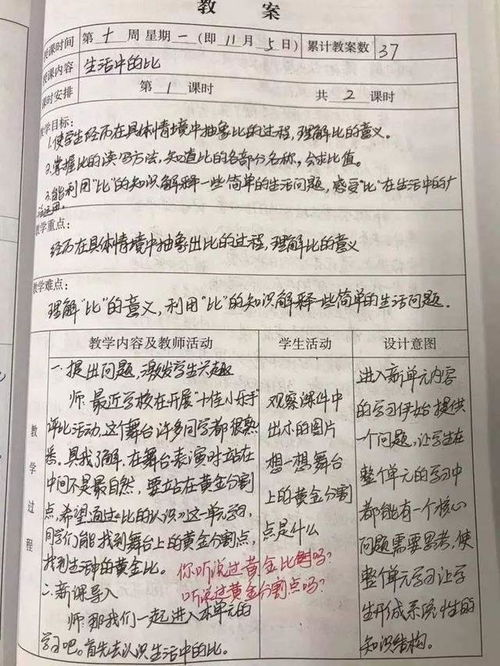 教 案
授课时间 第 十 周 星期 一 (即 11 月 5 日) 累计教案数 37
授课内容 生活中的比
课时安排 第 1 课时 共 2 课时
教学目标:
1.使学生经历在具体情境中抽象比的过程,理解比的意义。
2.掌握比的读写方法,知道比的各部分名称,会求比值。
3.能利用“比”的知识解释一些简单的生活问题,感受“比”在生活中的广
泛运用。
教学重点:
经历在具体情境中抽象出比的过程,理解比的意义
教学难点:
理解“比”的意义,利用“比”的知识解释一些简单的生活问题.
教学过程
教学内容及教师活动
一.提出问题,激发学生兴趣
师:最近学校在开展“十佳小歌手”
评比活动.这个舞台许多同学都很熟
悉,具我了解,在舞台表演时站在
中间不是最自然,要站在黄金分割
点,希望通过《比的认识》这一单元学习,
同学们能找到舞台上的黄金分割点,
找到生活中的黄金比。
你听说过黄金比例吗?
听说过黄金分割点吗?
二.新课导入
师:那我们一起进入本单元的
学习吧.首先去认识生活中的比。
学生活动
观察课件中
出示的图片
想一想舞台
上的黄金分割
点是什么
设计意图
进入新单元内容
的学习伊始提供
一个问题,让学生在
整个单元的学习中
都能有一个核心
问题需要思考,使
整个单元学习让学
生形成系统性的
知识结构。